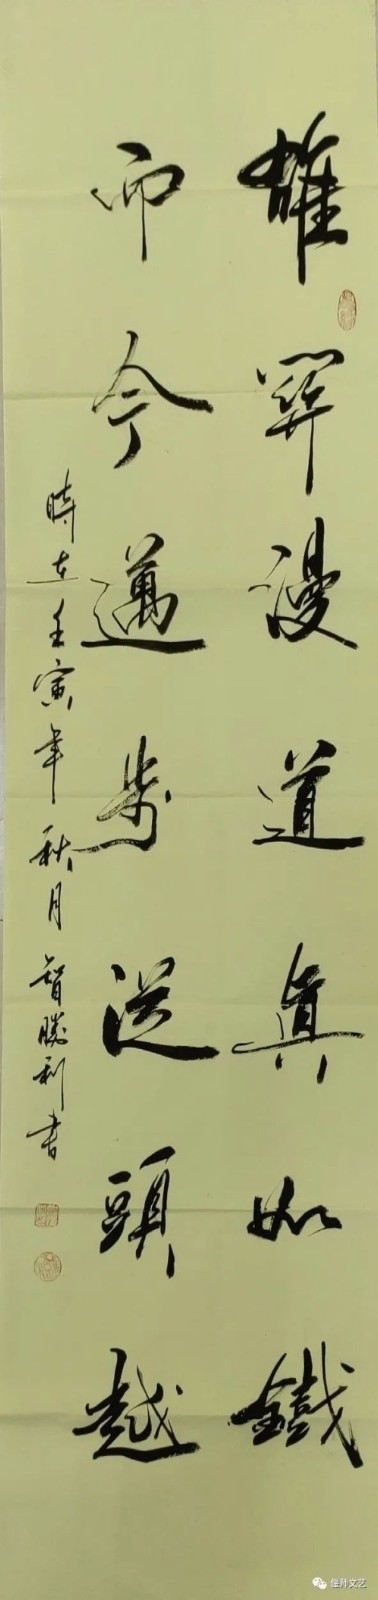 雄関漫道真如鐵
而今邁步從頭越
時在壬寅年秋月智勝利書
偃师文艺